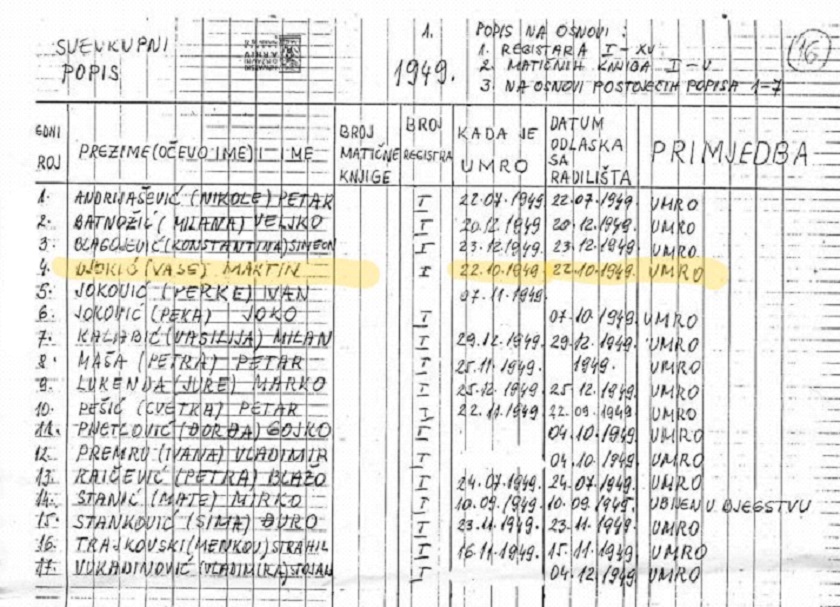 SVEUKUPNI
POPIS
1.
1949.
POPIS NA OSNOVI:
1. REGISTARA I - XV
2. MATIČNIH KNJIGA I - V
3. NA OSNOVI POSTOJEĆIH POPISA 1-7
16
ROJ PREZIME (OČEVO IME) I IME BROJ MATIČNE KNJIGE BROJ REGISTRA KADA JE UMRO DATUM ODLASKA SA RADILIŠTA PRIMJEDBA
1. ANDRIJAŠEVIĆ (NIKOLE) PETAR I 22.07.1949 22.07.1949. UMRO
2. BATNOŽIĆ (MILANA) VELJKO I 20.12.1949 20.12.1949. UMRO
3. BLAGOJEVIĆ (KONSTANTINA) SIMEON I 23.12.1949. 23.12.1949. UMRO
4. DJOKIĆ (VASE) MARTIN I 22.10.1949 22.10.1949. UMRO
5. JOKOVIĆ (PERKE) IVAN 07.11.1949.
6. JOKOVIĆ (PEKA) JOKO I 07.10.1949. UMRO
7. KALJABIĆ (VASILIJA) MILAN I 29.12.1949. 29.12.1949. UMRO
8. MAŠA (PETRA) PETAR I 25.11.1949. 1949. UMRO
9. LUKENDA (JURE) MARKO I 25.12.1949. 25.12.1949. UMRO
10. PEŠIĆ (CVETKA) PETAR I 22.11.1949 22.09.1949 UMRO
11. (ĐORĐA) GOJKO I 04.10.1949. UMRO
12. PREMRU (IVANA) VLADIMIR I 04.10.1949. UMRO
13. RAIČEVIĆ (PETRA) BLAŽO I 24.07.1949. 24.07.1949. UMRO
14. STANIĆ (MATE) MIRKO I 10.09.1949. 10.09.1949. UBIJEN U BJEGSTVU
15. STANKOVIĆ (SIMA) ĐURO I 23.11.1949. 23.11.1949. UMRO
16. TRAJKOVSKI (MENKOV) STRAHIL I 16.11.1949. 15.11.1949. UMRO
17. VUKADINOVIĆ (VLADIMIRA) STOJAN I 04.12.1949 UMRO